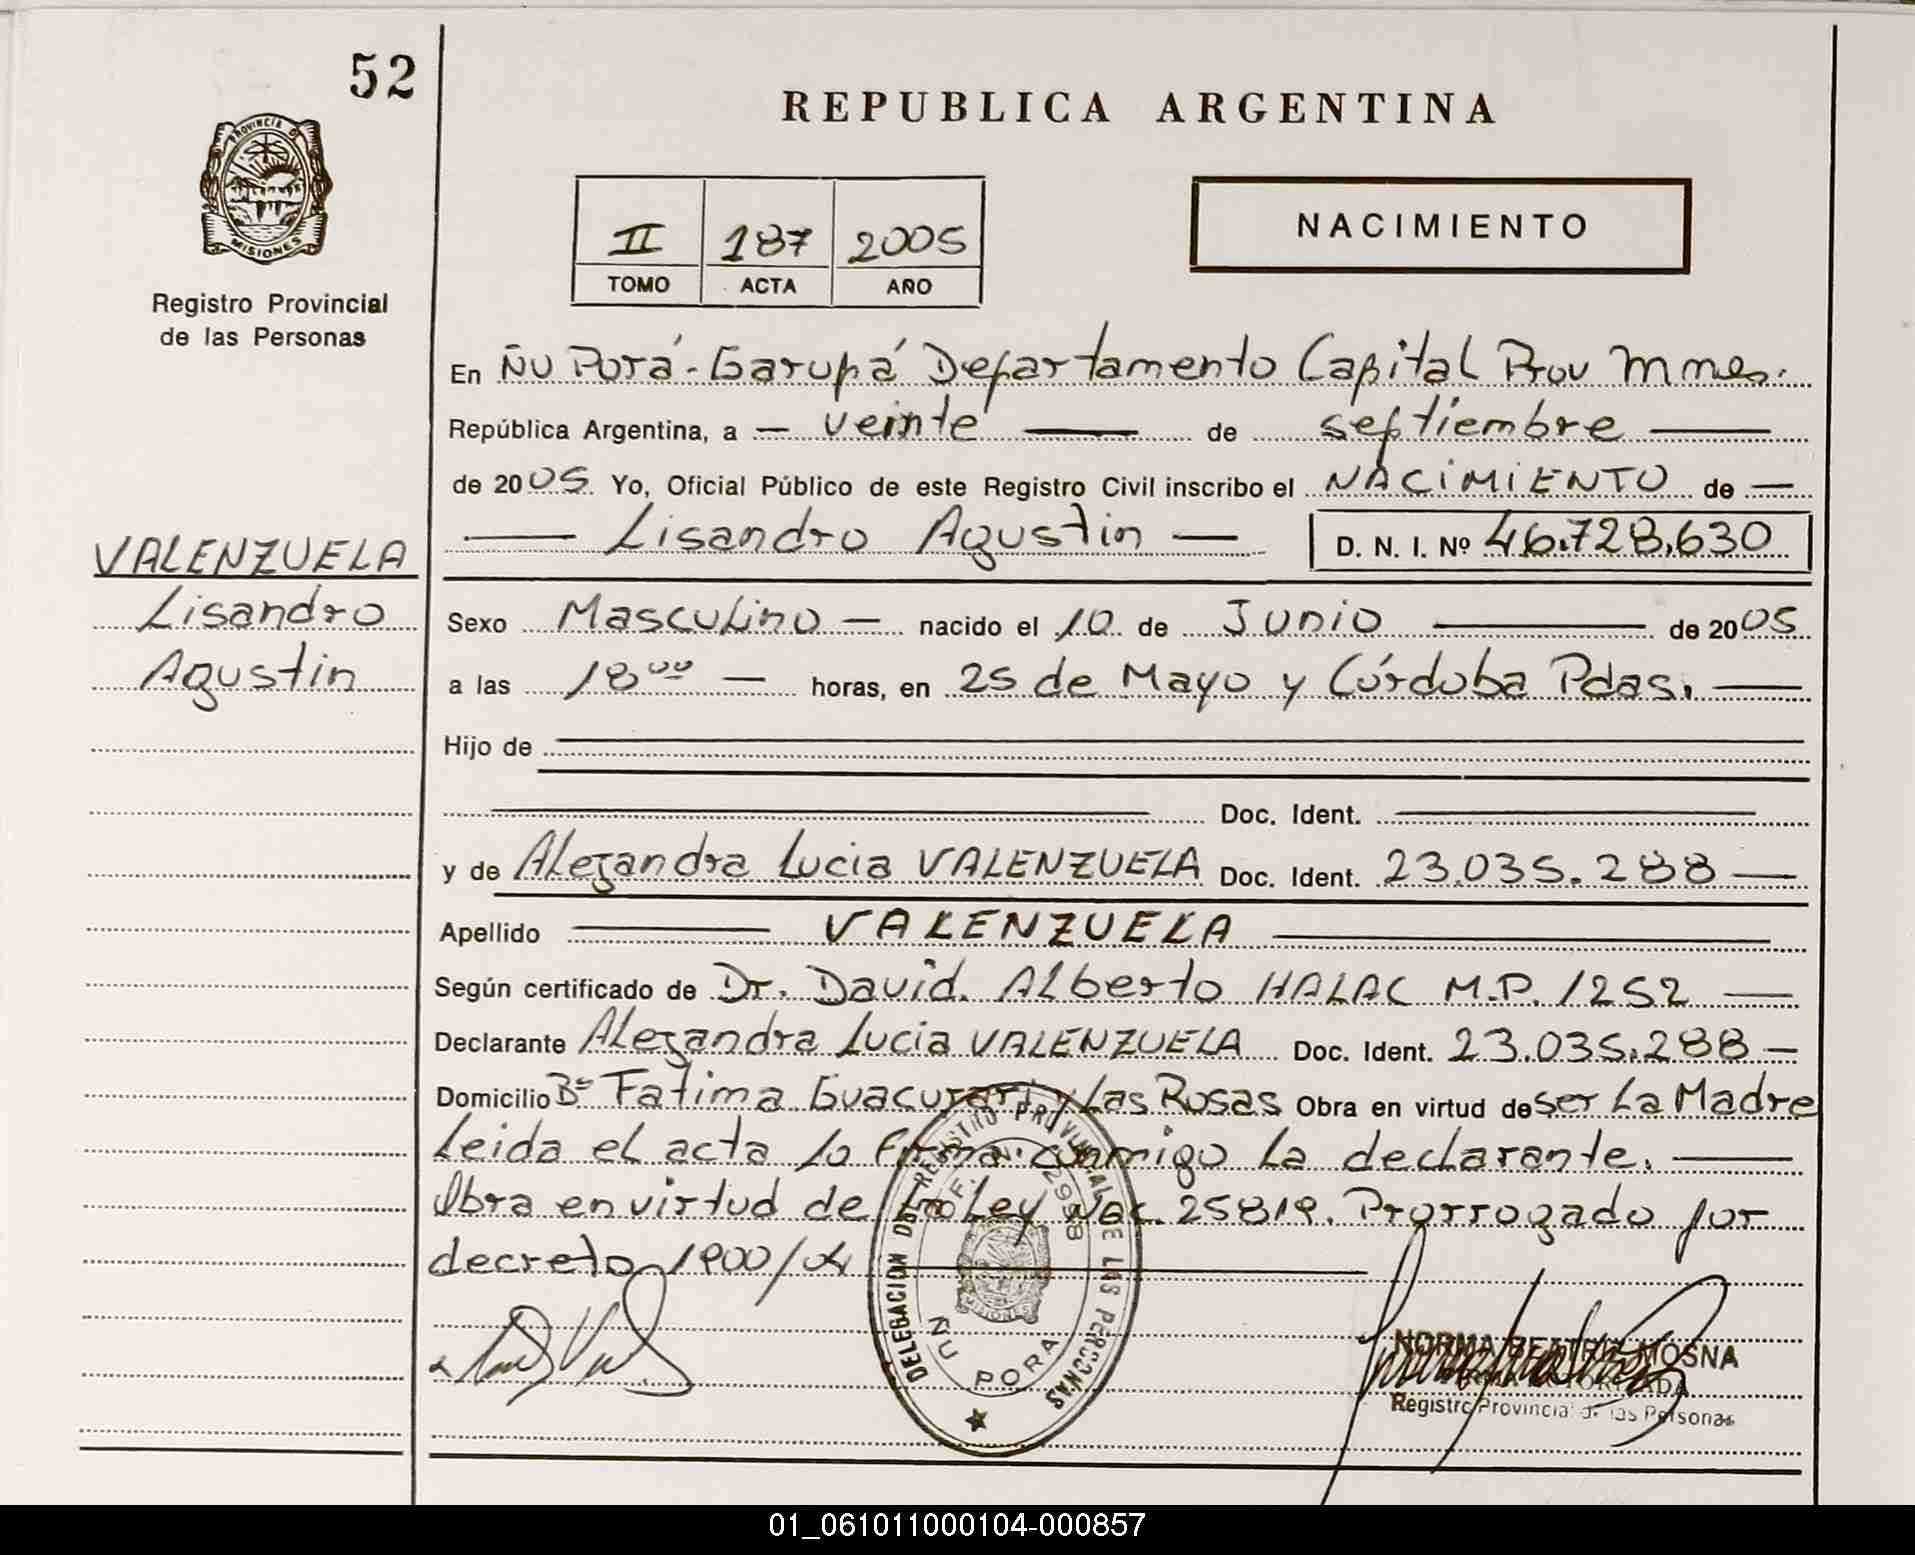 52
REPUBLICA ARGENTINA
PROVINCIA DE
MISIONES
Registro Provincial
de las Personas
II 187 2005
TOMO ACTA AÑO
NACIMIENTO
En Ñu Porá - Garupá Departamento Capital Prov Mnes.
República Argentina, a — veinte — de septiembre —
de 2005. Yo, Oficial Público de este Registro Civil inscribo el NACIMIENTO de —
— Lisandro Agustin — D. N. I. Nº 46.728.630
VALENZUELA
Lisandro
Agustin
Sexo Masculino — nacido el 10 de Junio — de 2005
a las 18 00 — horas, en 25 de Mayo y Córdoba Pdas. —
Hijo de
Doc. Ident.
y de Alejandra Lucia VALENZUELA Doc. Ident. 23.035.288 —
Apellido — VALENZUELA —
Según certificado de Dr. David Alberto HALAC M.P. 1252 —
Declarante Alejandra Lucia VALENZUELA Doc. Ident. 23.035.288 —
Domicilio Bº Fatima Guacurari y Las Rosas Obra en virtud de ser La Madre
Leida el acta lo firma conmigo la declarante. —
Obra en virtud de la Ley Nac. 25819. Prorrogado por
decreto 1900/04 —
DELEGACION DEL REGISTRO PROVINCIAL DE LAS PERSONAS
2998
MISIONES
ÑU PORA
NORMA BEATRIZ MOSNA
Registro Provincial de las Personas
01_061011000104-000857